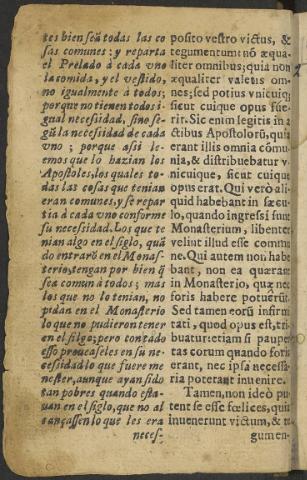 tes bien seã todas las co
sas comunes: y reparta
el Prelado à cada vno
la comida, y el vestido,
no igualmente à todos;
porque no tienen todos i
gual necesidad, sino se-
gũ la necesidad de cada
vno ; porque asi lee
emos que lo hazian los
Apostoles, los quales to
das las cosas que tenian
eran comunes, y se repar
tia à cada vno conforme
su necesidad. Los que te
nian algo en el siglo, quã
do entrarõ en el Monas-
terio, tengan por bien q̃
sea comun à todos; mas
los que no lo tenian, no
pidan en el Monasterio
lo que no pudieron tener
en el silgo; pero con todo
esso proueaseles en su ne-
cesidad lo que fuere me
nester, aunque ayan sido
tan pobres quando esta-
uan en el siglo, que no al
cançassen lo que les era
neces-
posito vestro victus, &
tegumentum: nõ æqua-
liter omnibus; quia non
æqualiter valetis om-
nes; sed potius vnicuiq;
sicut cuique opus fue-
rit. Sic enim legitis in a
ctibus Apostolorũ, quia
erant illis omnia cõmu-
nia, & distribuebatur v-
nicuique, sicut cuique
opus erat. Qui verò ali-
quid habebant in sæcu-
lo, quando ingressi sunt
Monasterium, libenter
velint illud esse commu
ne. Qui autem non habe
bant, non ea quærant
in Monasterio, quæ nec
foris habere potuerũt.
Sed tamen eorũ infirmi
tati, quod opus est, tri-
buatur: etiam si pauper
tas eorum quando foris
erant, nec ipsa necessa-
ria poterant inuenire.
Tamen, non ideò pu-
tent se esse fœlices, quia
inuenerunt victum, & te
gumen-